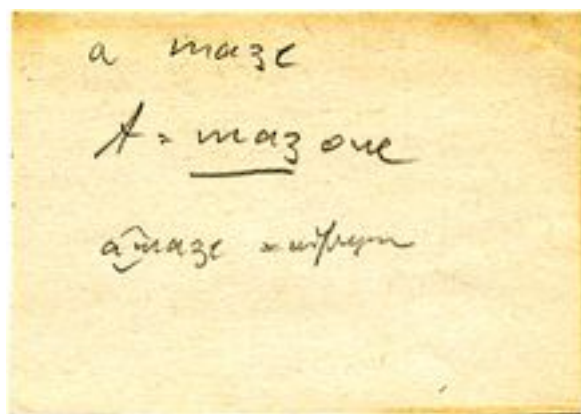 a maze
A = mazone
a maze =